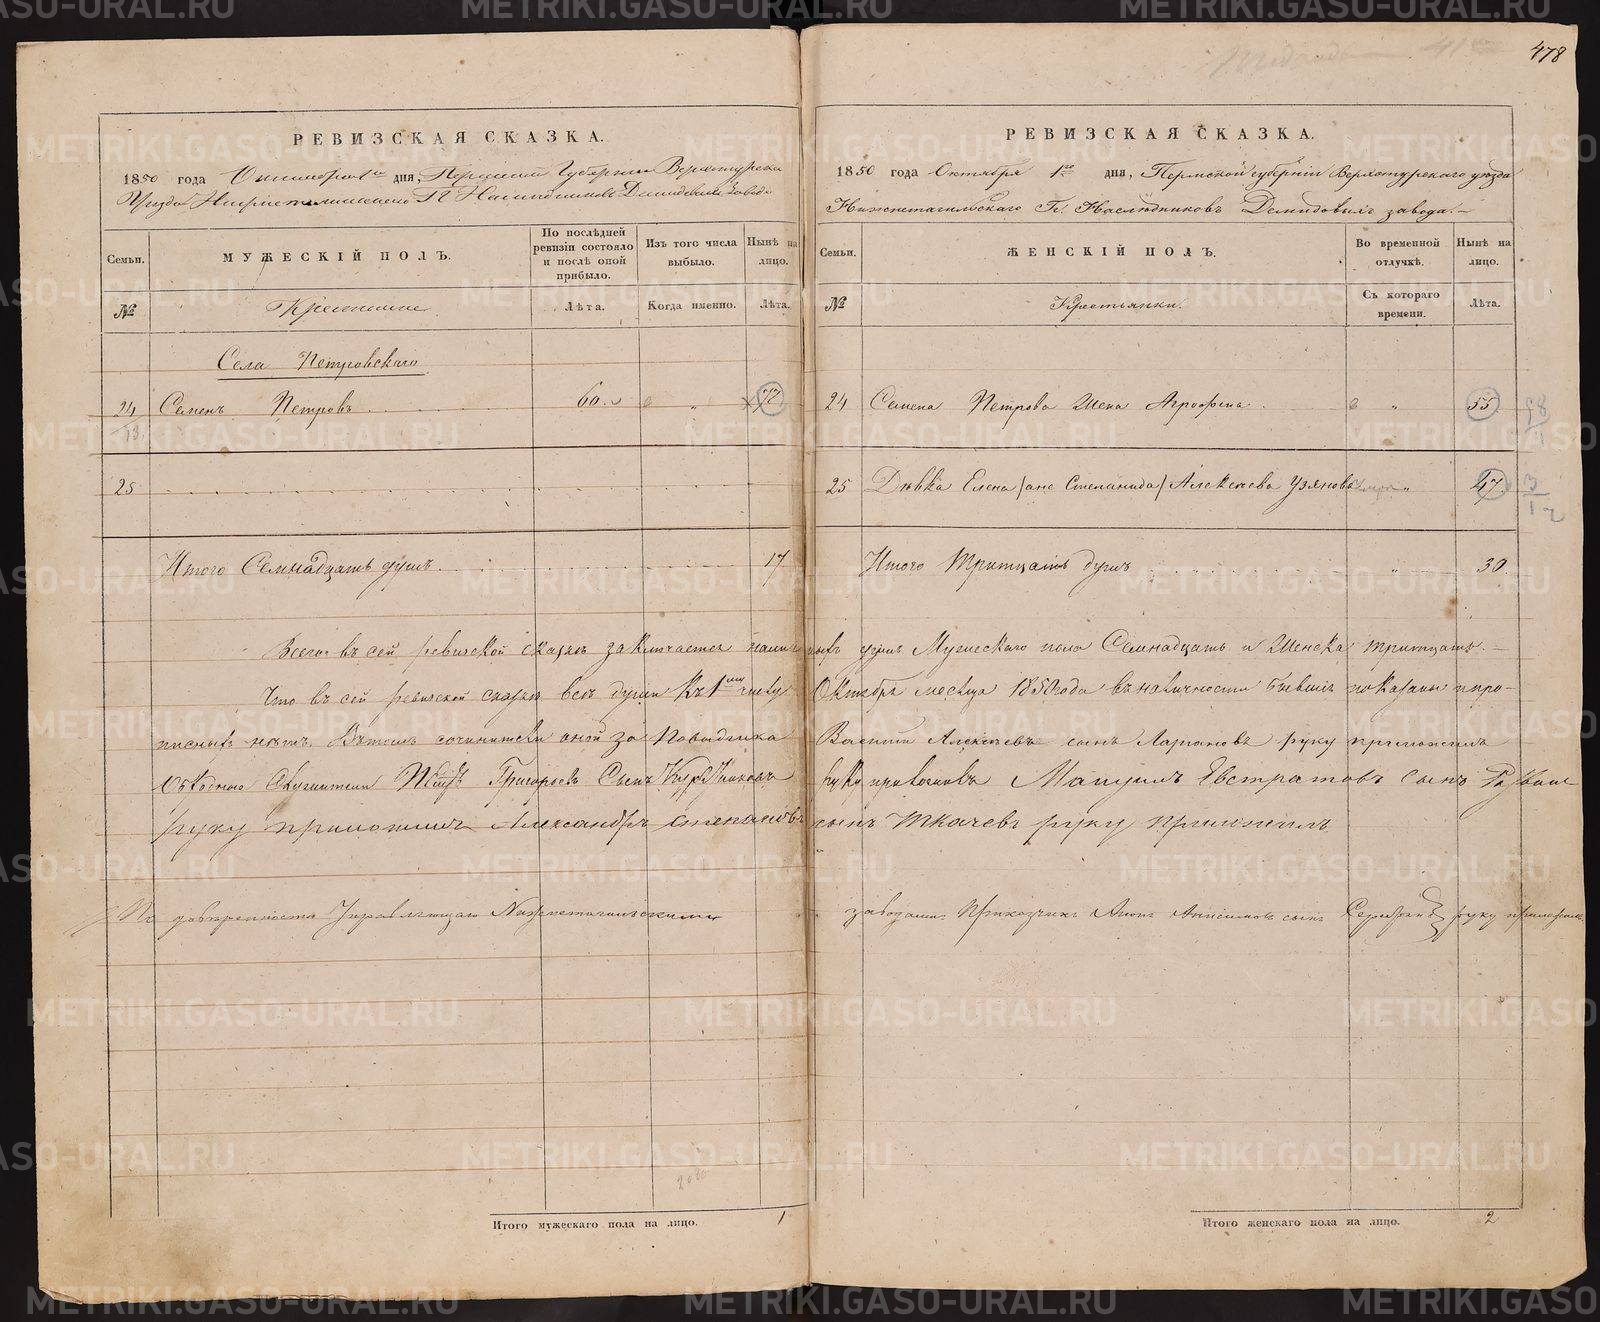 478
РЕВИЗСКАЯ СКАЗКА.
1850 года Октября 1го дня, Пермской Губернии Верхотурска
Уезда Нижнетагильскаго Гг. Наследниковъ Демидовыхъ завода
Семьи.
МУЖЕСКІЙ ПОЛЪ.
По послѣдней ревизіи состояло и послѣ оной прибыло.
Изъ того числа выбыло.
Нынѣ на лицо.
№
Крестьяне
Лѣта.
Когда именно.
Лѣта.
Села Петровскаго
24 Семенъ Петровъ 60 " 72
13
25
Итого Семнадцать душъ 17
РЕВИЗСКАЯ СКАЗКА.
1850 года Октября 1го дня, Пермской губерніи Верхотурскаго уезда
Нижнетагильскаго Гг. Наслѣдниковъ Демидовыхъ завода.
Семьи.
ЖЕНСКІЙ ПОЛЪ.
Во временной отлучкѣ.
Нынѣ на лицо.
№
Крестьянки.
Съ котораго времени.
Лѣта.
24 Семена Петрова Жена Агрофена " 55
25 Дѣвка Елена /она Степанида/ Алексѣева Узянова " 47
3
12
Итого Тритцать душъ " 30
Всего въ сей ревизской сказкѣ заключается душъ Мужескаго пола Семнадцать и Женска тритцать.
Что въ сей ревизской сказкѣ всѣ души къ 1му числу Октября месяца 1850 года въ наличности бывшія показаны и про-
писныхъ нѣтъ. Въ томъ сочинители оной за Василій Алексѣевъ сынъ Ларіоновъ руку приложилъ
Григорьевъ Сынъ руку приложилъ Евстратовъ сынъ
руку приложилъ Александръ Степановъ сынъ Ткачевъ руку приложилъ
По довѣренности Управляющаго Нижнетагильскими заводами Прикащикъ Анисимовъ сынъ руку приложилъ
Итого мужескаго пола на лицо. 1
Итого женскаго пола на лицо. 2
METRIKI.GASO-URAL.RU